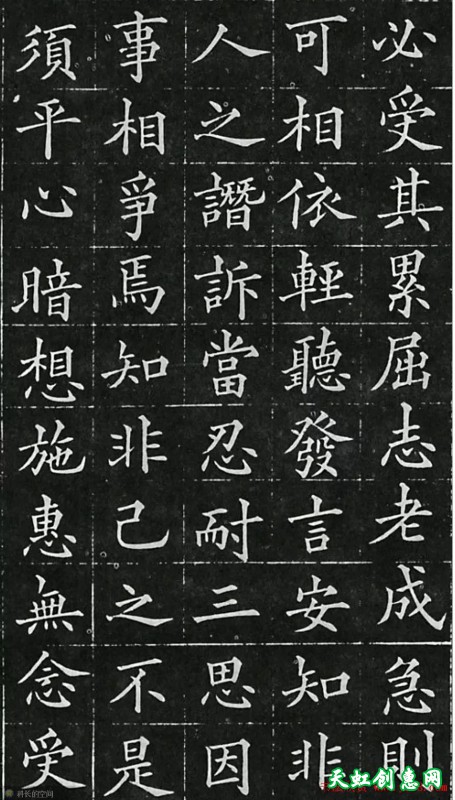 必受其累屈志老成急則
可相依輕聽發言安知非
人之譖訴當忍耐三思因
事相爭焉知非己之不是
須平心暗想施惠無念受
科长的空间
天虹创意网